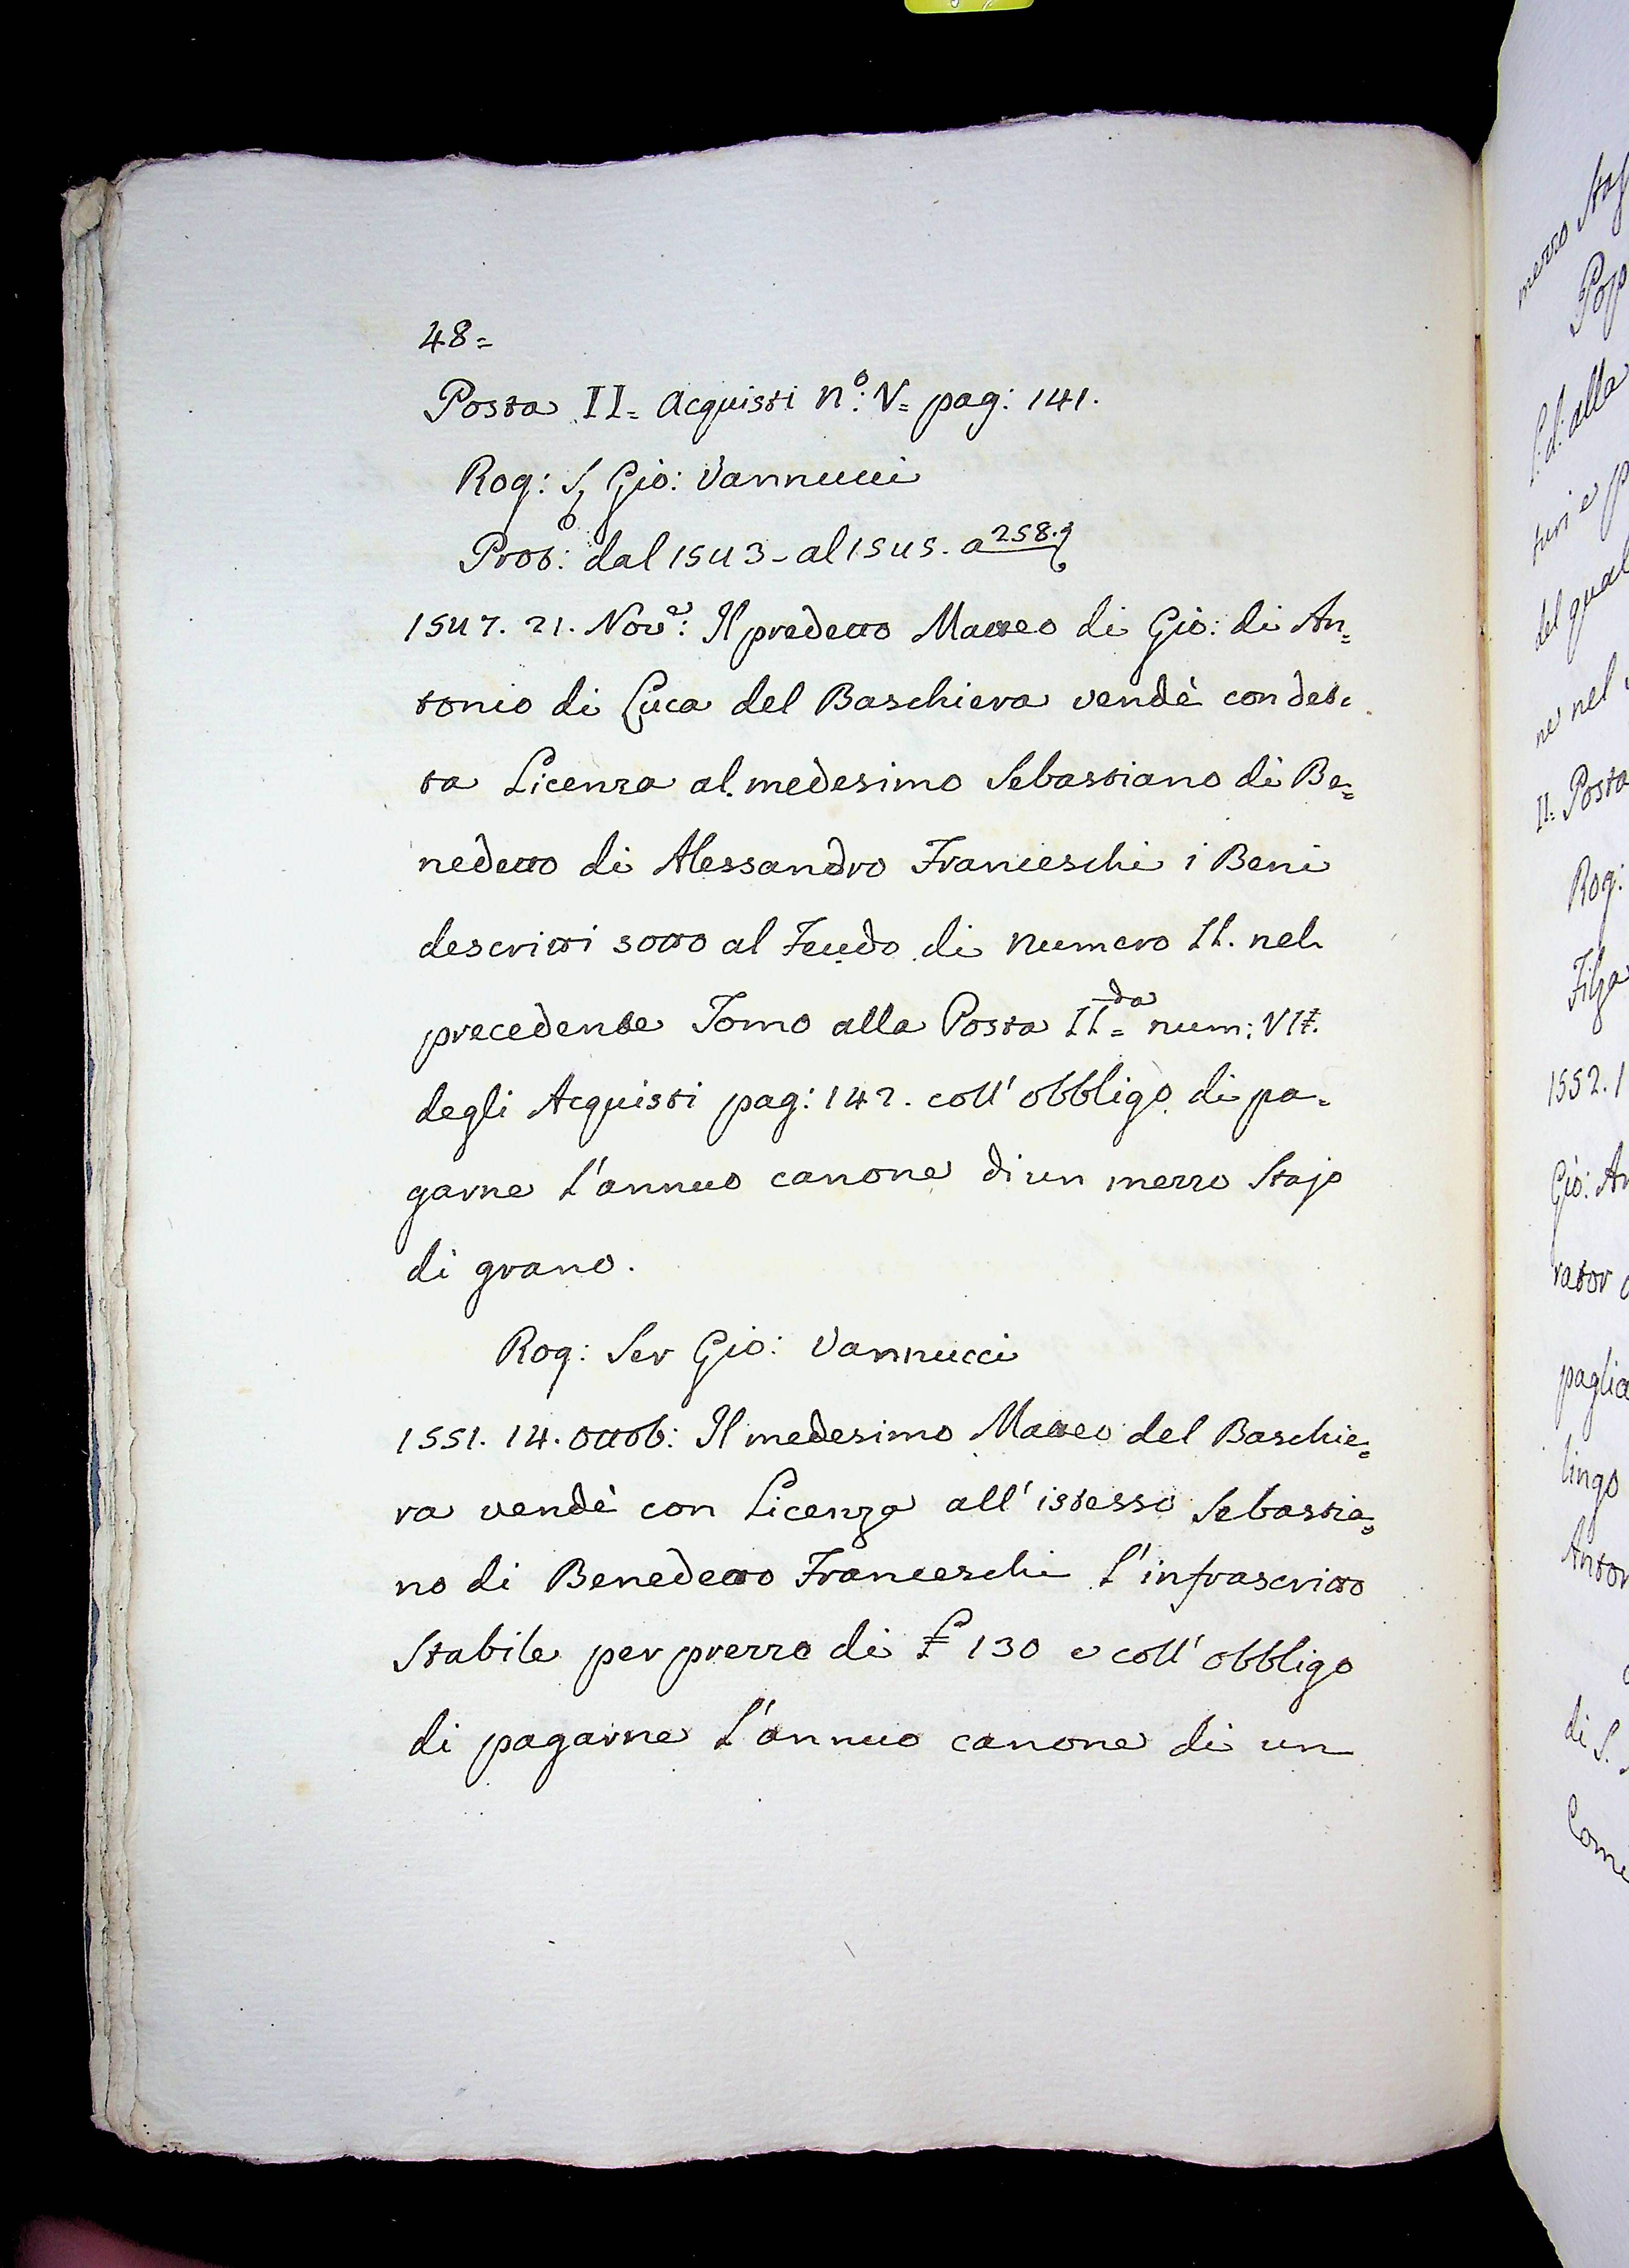 48=
Posta II= Acquisti n.º V= pag: 141.
Rog: S. Gio: Vannucci
Prot.º: dal 1543 - al 1545. a 258.
1547. 21. Nov.e: Il predetto Matteo di Gio: di An=
tonio di Luca del Baschiera vendè con det=
ta Licenza al medesimo Sebastiano di Be=
nedetto di Alessandro Franceschi i Beni
descritti sotto al Feudo di numero II. nel
precedente Tomo alla Posta II=da num: VII.
degli Acquisti pag: 142. coll' obbligo di pa=
garne l'annuo canone di un mezzo Stajo
di grano.
Rog: Ser Gio: Vannucci
1551. 14. Ottob: Il medesimo Matteo del Baschie=
ra vendè con Licenza all' istesso Sebastia=
no di Benedetto Franceschi l'infrascritto
Stabile per prezzo di £ 130 e coll' obbligo
di pagarne l'annuo canone di un
mezzo
Pop
alla
del qual
nel
II= Posta
Rog:
Filza
1552. 1
Gio: An
rator
paglia
lingo
Anton
di S.